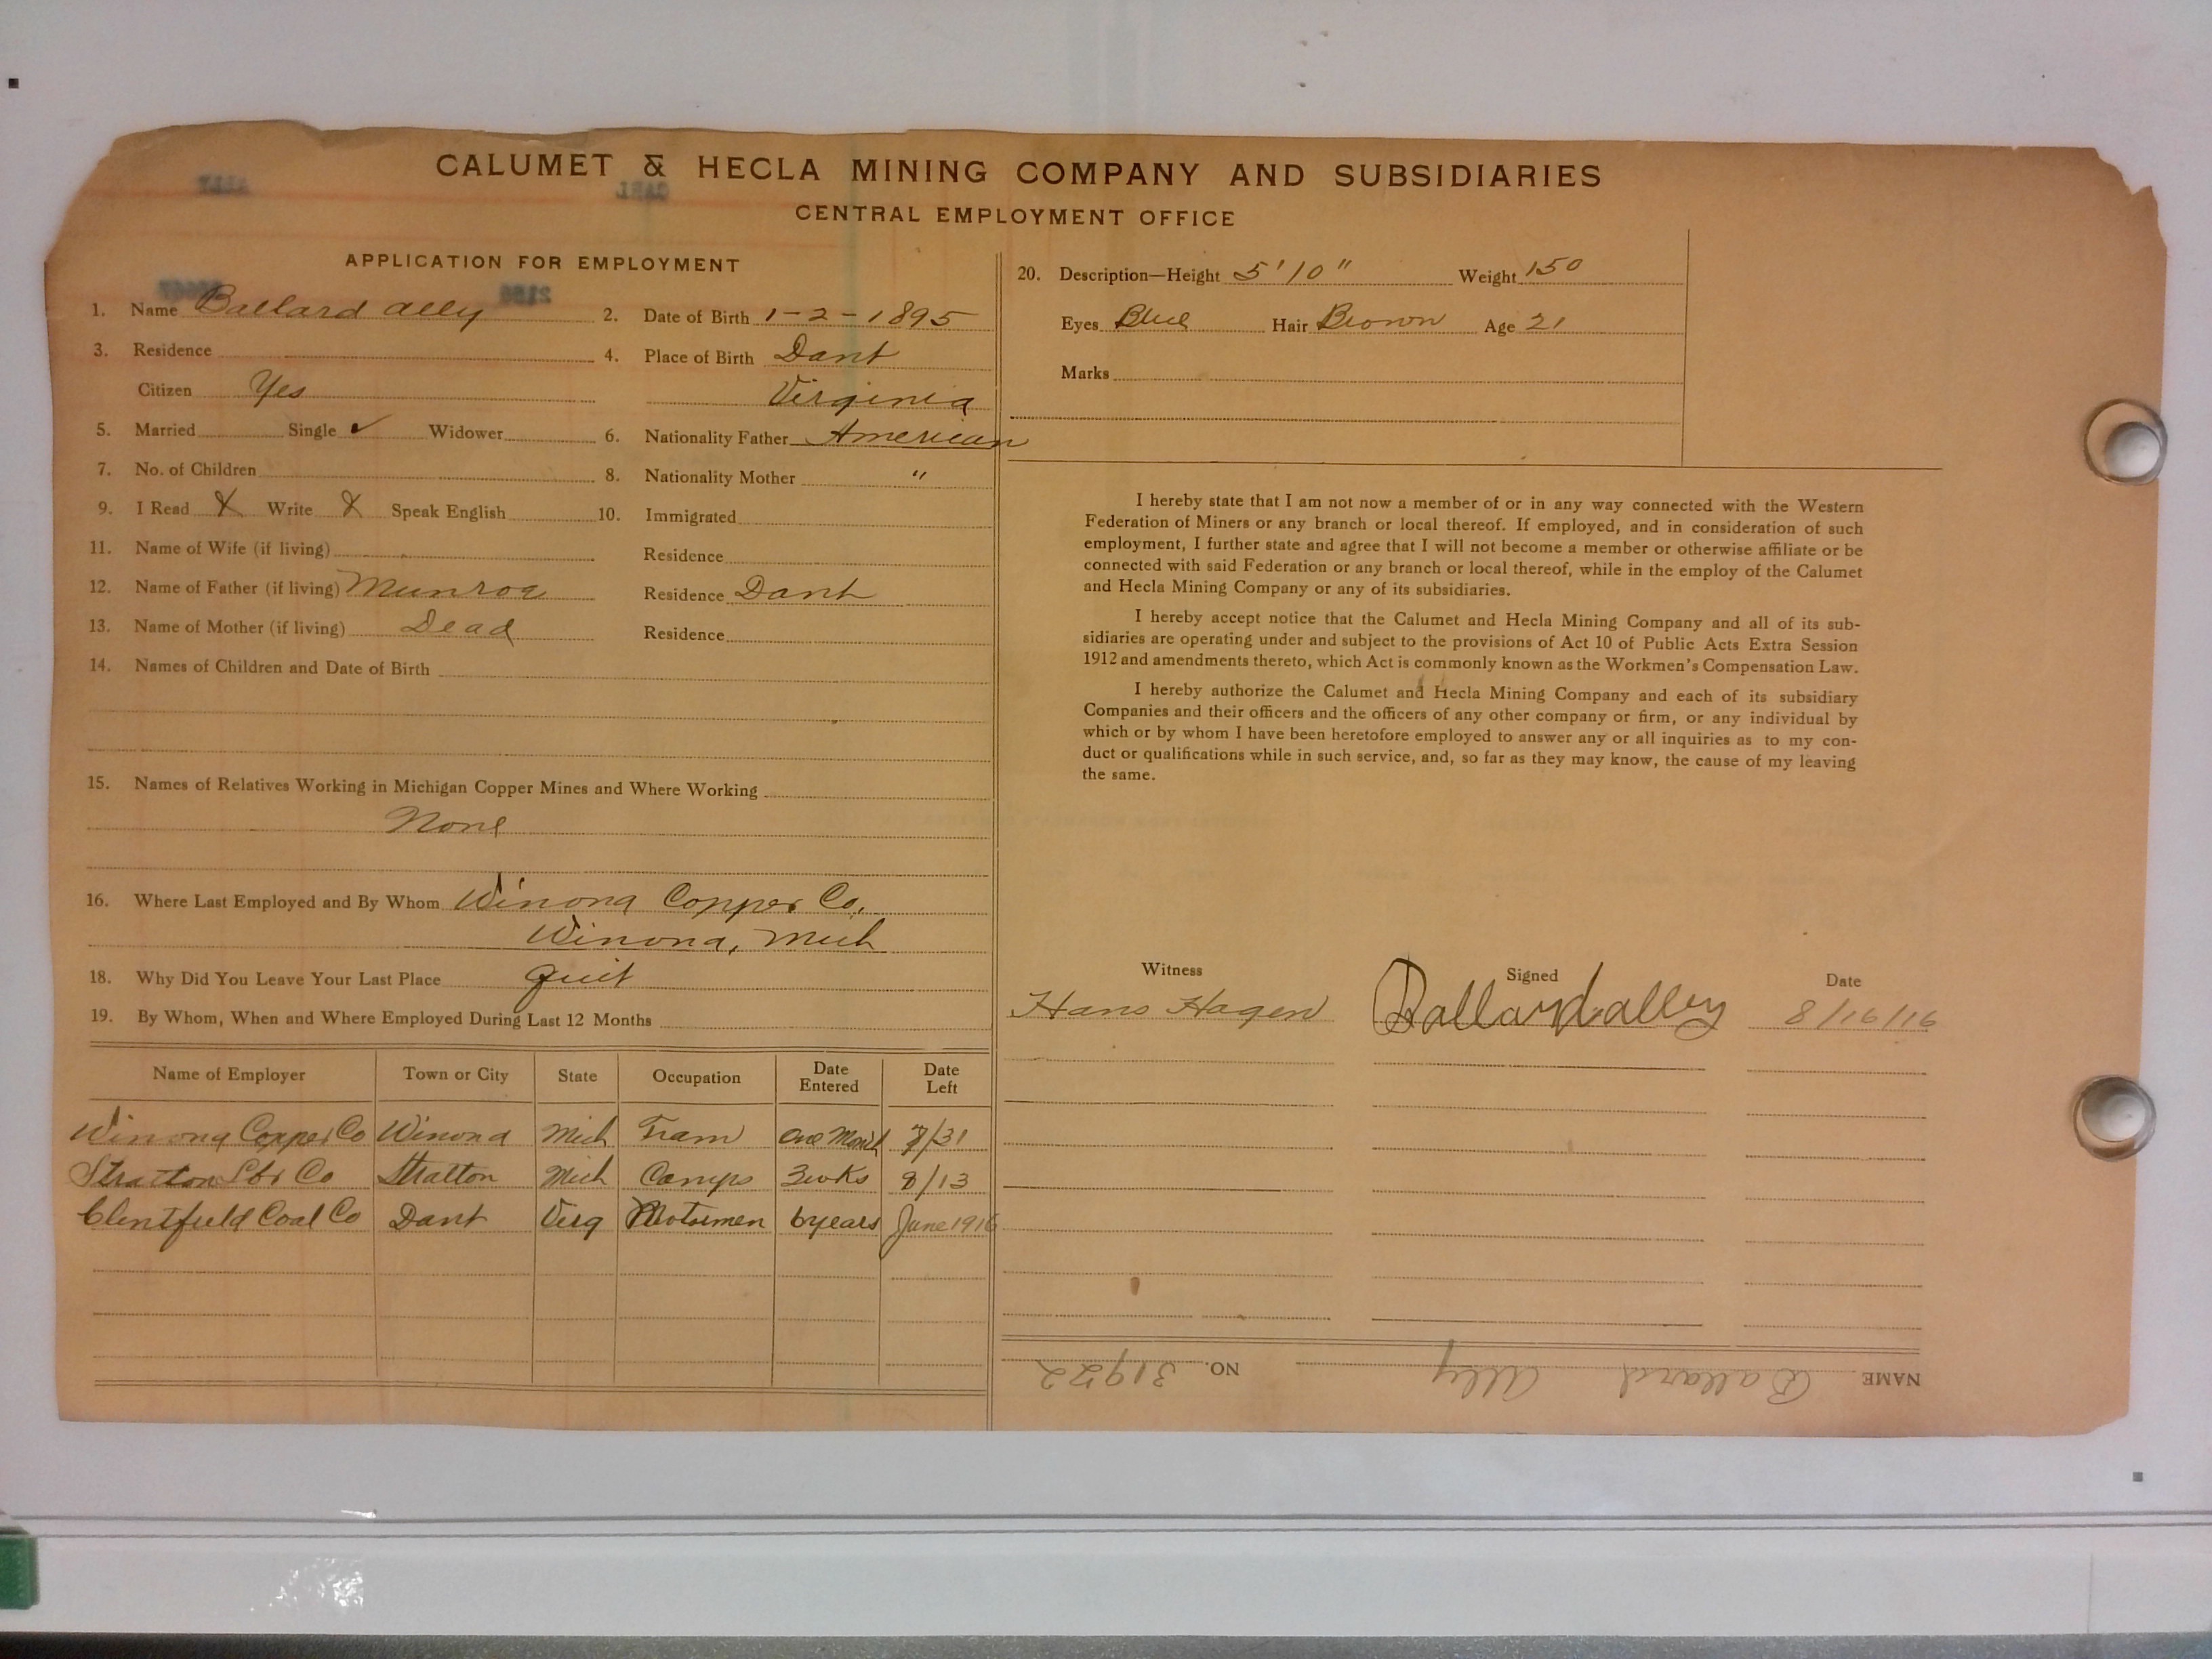 CALUMET & HECLA MINING COMPANY AND SUBSIDIARIES
CENTRAL EMPLOYMENT OFFICE
APPLICATION FOR EMPLOYMENT
1. Name Ballard Ally 2. Date of Birth 1-2-1895
3. Residence 4. Place of Birth Dant
Citizen Yes Virginia
5. Married Single ✓ Widower 6. Nationality Father American
7. No. of Children 8. Nationality Mother "
9. I Read X Write X Speak English 10. Immigrated
11. Name of Wife (if living) Residence
12. Name of Father (if living) Munroe Residence Dant
13. Name of Mother (if living) Dead Residence
14. Names of Children and Date of Birth
15. Names of Relatives Working in Michigan Copper Mines and Where Working
None
16. Where Last Employed and By Whom Winona Copper Co.
Winona, Mich
18. Why Did You Leave Your Last Place quit
19. By Whom, When and Where Employed During Last 12 Months
Name of Employer Town or City State Occupation Date Entered Date Left
Winona Copper Co Winona Mich Tram One Month 7/31
Stratton Lbr Co Stratton Mich Camps 3 wks 8/13
Clentfield Coal Co Dant Virg Motormen 6 years June 1916
20. Description—Height 5'10" Weight 150
Eyes Blue Hair Brown Age 21
Marks
I hereby state that I am not now a member of or in any way connected with the Western
Federation of Miners or any branch or local thereof. If employed, and in consideration of such
employment, I further state and agree that I will not become a member or otherwise affiliate or be
connected with said Federation or any branch or local thereof, while in the employ of the Calumet
and Hecla Mining Company or any of its subsidiaries.
I hereby accept notice that the Calumet and Hecla Mining Company and all of its sub-
sidiaries are operating under and subject to the provisions of Act 10 of Public Acts Extra Session
1912 and amendments thereto, which Act is commonly known as the Workmen's Compensation Law.
I hereby authorize the Calumet and Hecla Mining Company and each of its subsidiary
Companies and their officers and the officers of any other company or firm, or any individual by
which or by whom I have been heretofore employed to answer any or all inquiries as to my con-
duct or qualifications while in such service, and, so far as they may know, the cause of my leaving
the same.
Witness Signed Date
Hans Hagen Ballard alley 8/16/16
NAME Ballard Ally NO. 31922